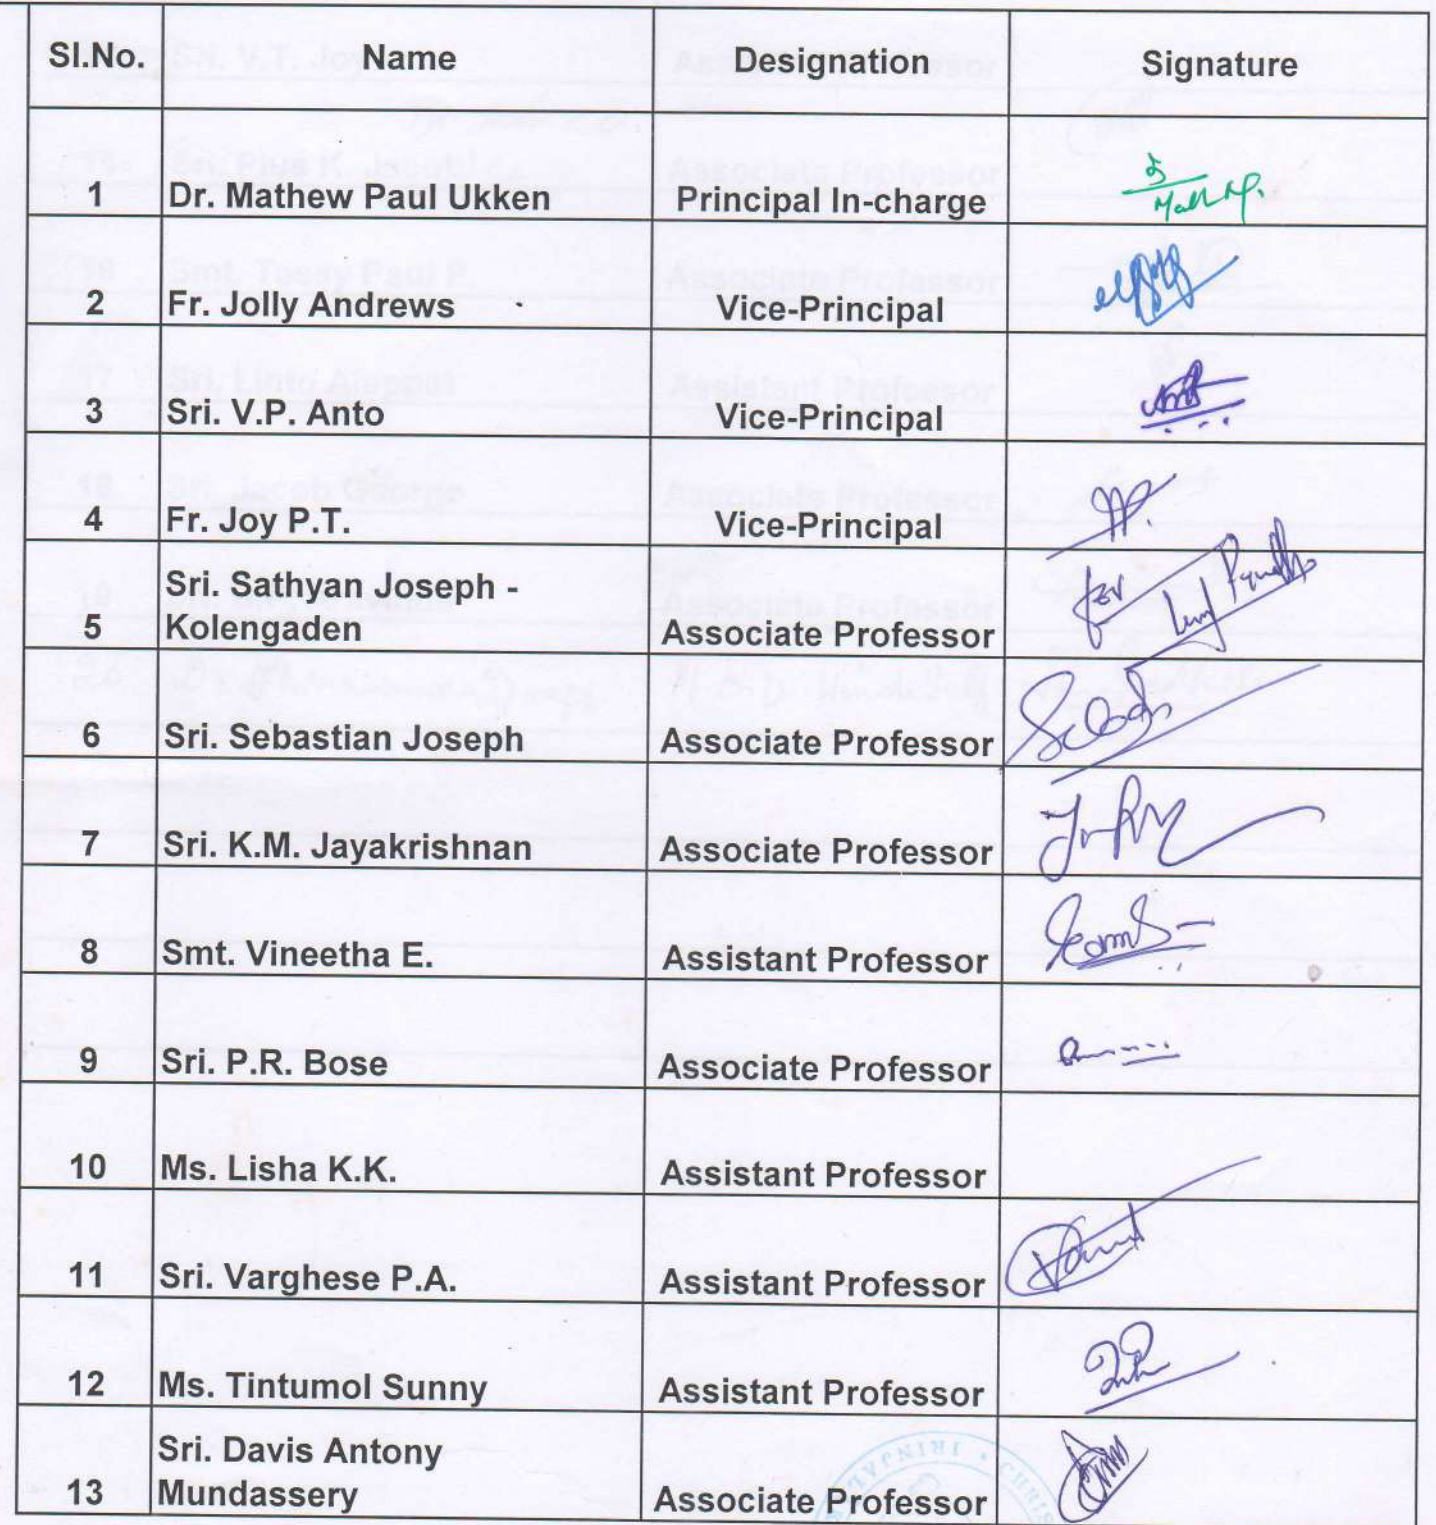 Sl.No. Name Designation Signature
1 Dr. Mathew Paul Ukken Principal In-charge
2 Fr. Jolly Andrews Vice-Principal
3 Sri. V.P. Anto Vice-Principal
4 Fr. Joy P.T. Vice-Principal
Sri. Sathyan Joseph -
5 Kolengaden Associate Professor for
6 Sri. Sebastian Joseph Associate Professor
7 Sri. K.M. Jayakrishnan Associate Professor
8 Smt. Vineetha E. Assistant Professor
9 Sri. P.R. Bose Associate Professor
10 Ms. Lisha K.K. Assistant Professor
11 Sri. Varghese P.A. Assistant Professor
12 Ms. Tintumol Sunny Assistant Professor
Sri. Davis Antony
13 Mundassery Associate Professor